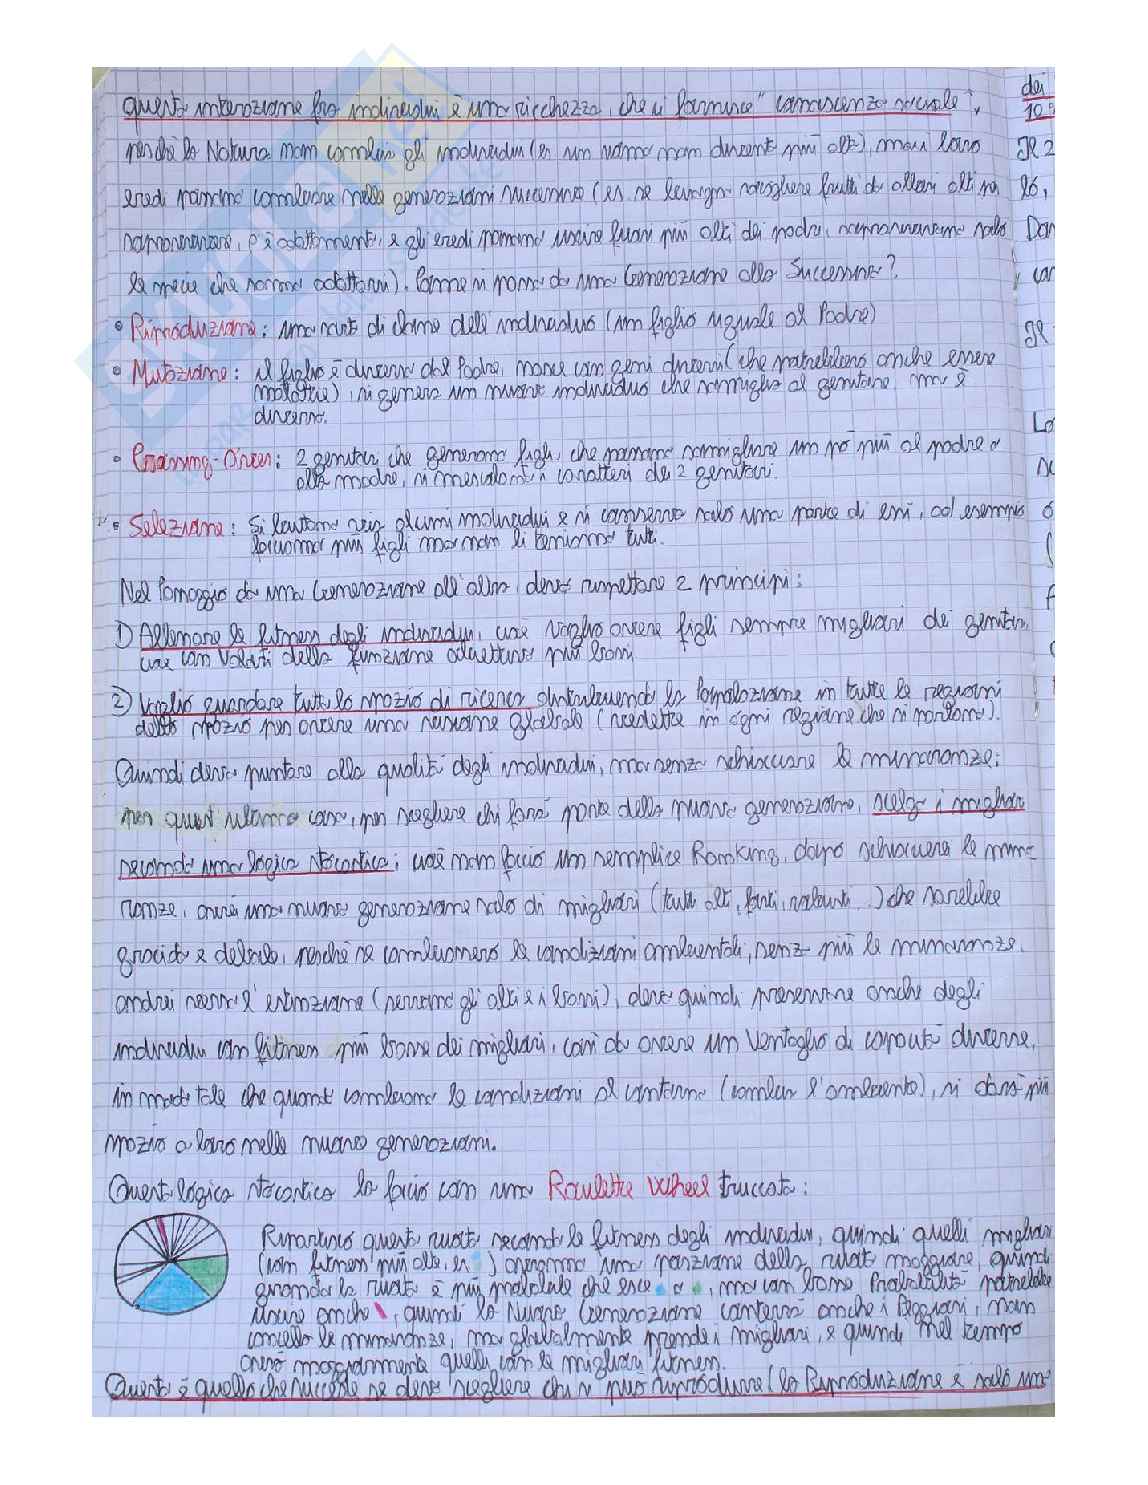 questa interazione fra individui è una ricchezza, che ci fornisce "conoscenza sociale",
perché la Natura non cambia gli individui (es un uomo non diventa più alto), ma i loro
eredi possono cambiare nelle generazioni successive (es. se bisogna raccogliere frutti da alberi alti per
sopravvivere, c'è adattamento, e gli eredi possono uscire fuori più alti del padre, sopravvivranno solo
le specie che sanno adattarsi). Come si passa da una Generazione alla Successiva?
• Riproduzione: una sorta di clone dell'individuo (un figlio uguale al Padre)
• Mutazione: il figlio è diverso dal Padre, nasce con geni diversi (che potrebbero anche essere
malattie), si genera un nuovo individuo che somiglia al genitore, ma è
diverso.
• Crossing-Over: 2 genitori che generano figli, che possono somigliare un po' più al padre o
alla madre, si mescolano i caratteri dei 2 genitori.
• Selezione: Si buttano via alcuni individui e si conserva solo una parte di essi, ad esempio
facciamo più figli ma non li teniamo tutti.
Nel Passaggio da una Generazione all'altra devo rispettare 2 principi:
1) Allenare la fitness degli individui, cioè voglio avere figli sempre migliori dei genitori,
cioè con Valori della funzione obiettivo più buoni
2) Voglio guardare tutto lo spazio di ricerca distribuendo la Popolazione in tutte le regioni
dello spazio per avere una visione globale (vedette in ogni regione che si parlano).
Quindi devo puntare alla qualità degli individui, ma senza schiacciare le minoranze:
per quest'ultimo caso, per scegliere chi farà parte della nuova generazione, scelgo i migliori
secondo una logica stocastica, cioè non faccio un semplice Ranking, dopo schiaccerei le mino-
ranze, avrei una nuova generazione solo di migliori (tutti alti, forti, robusti...) che sarebbe
fragile e debole, perché se cambiassero le condizioni ambientali, senza più le minoranze,
andrei verso l'estinzione (persino gli alti e i buoni), devo quindi preservare anche degli
individui con fitness più bassa dei migliori, così da avere un Ventaglio di capacità diverse,
in modo tale che quando cambiano le condizioni al contorno (cambia l'ambiente), si darà più
spazio a loro nelle nuove generazioni.
Questa logica stocastica la faccio con una Roulette Wheel truccata:
Ripartisco questa ruota secondo le fitness degli individui, quindi quelli migliori
(con fitness più alta, es ) avranno una porzione della ruota maggiore, quindi
girando la ruota è più probabile che esce o , ma con bassa Probabilità potrebbe
uscire anche , quindi la Nuova Generazione conterrà anche i Peggiori, non
cancello le minoranze, ma globalmente prende i migliori, e quindi nel tempo
avrò maggiormente quelli con le migliori fitness.
Questo è quello che succede se devo scegliere chi si può riprodurre (la Riproduzione è solo una
dei
10
Lo